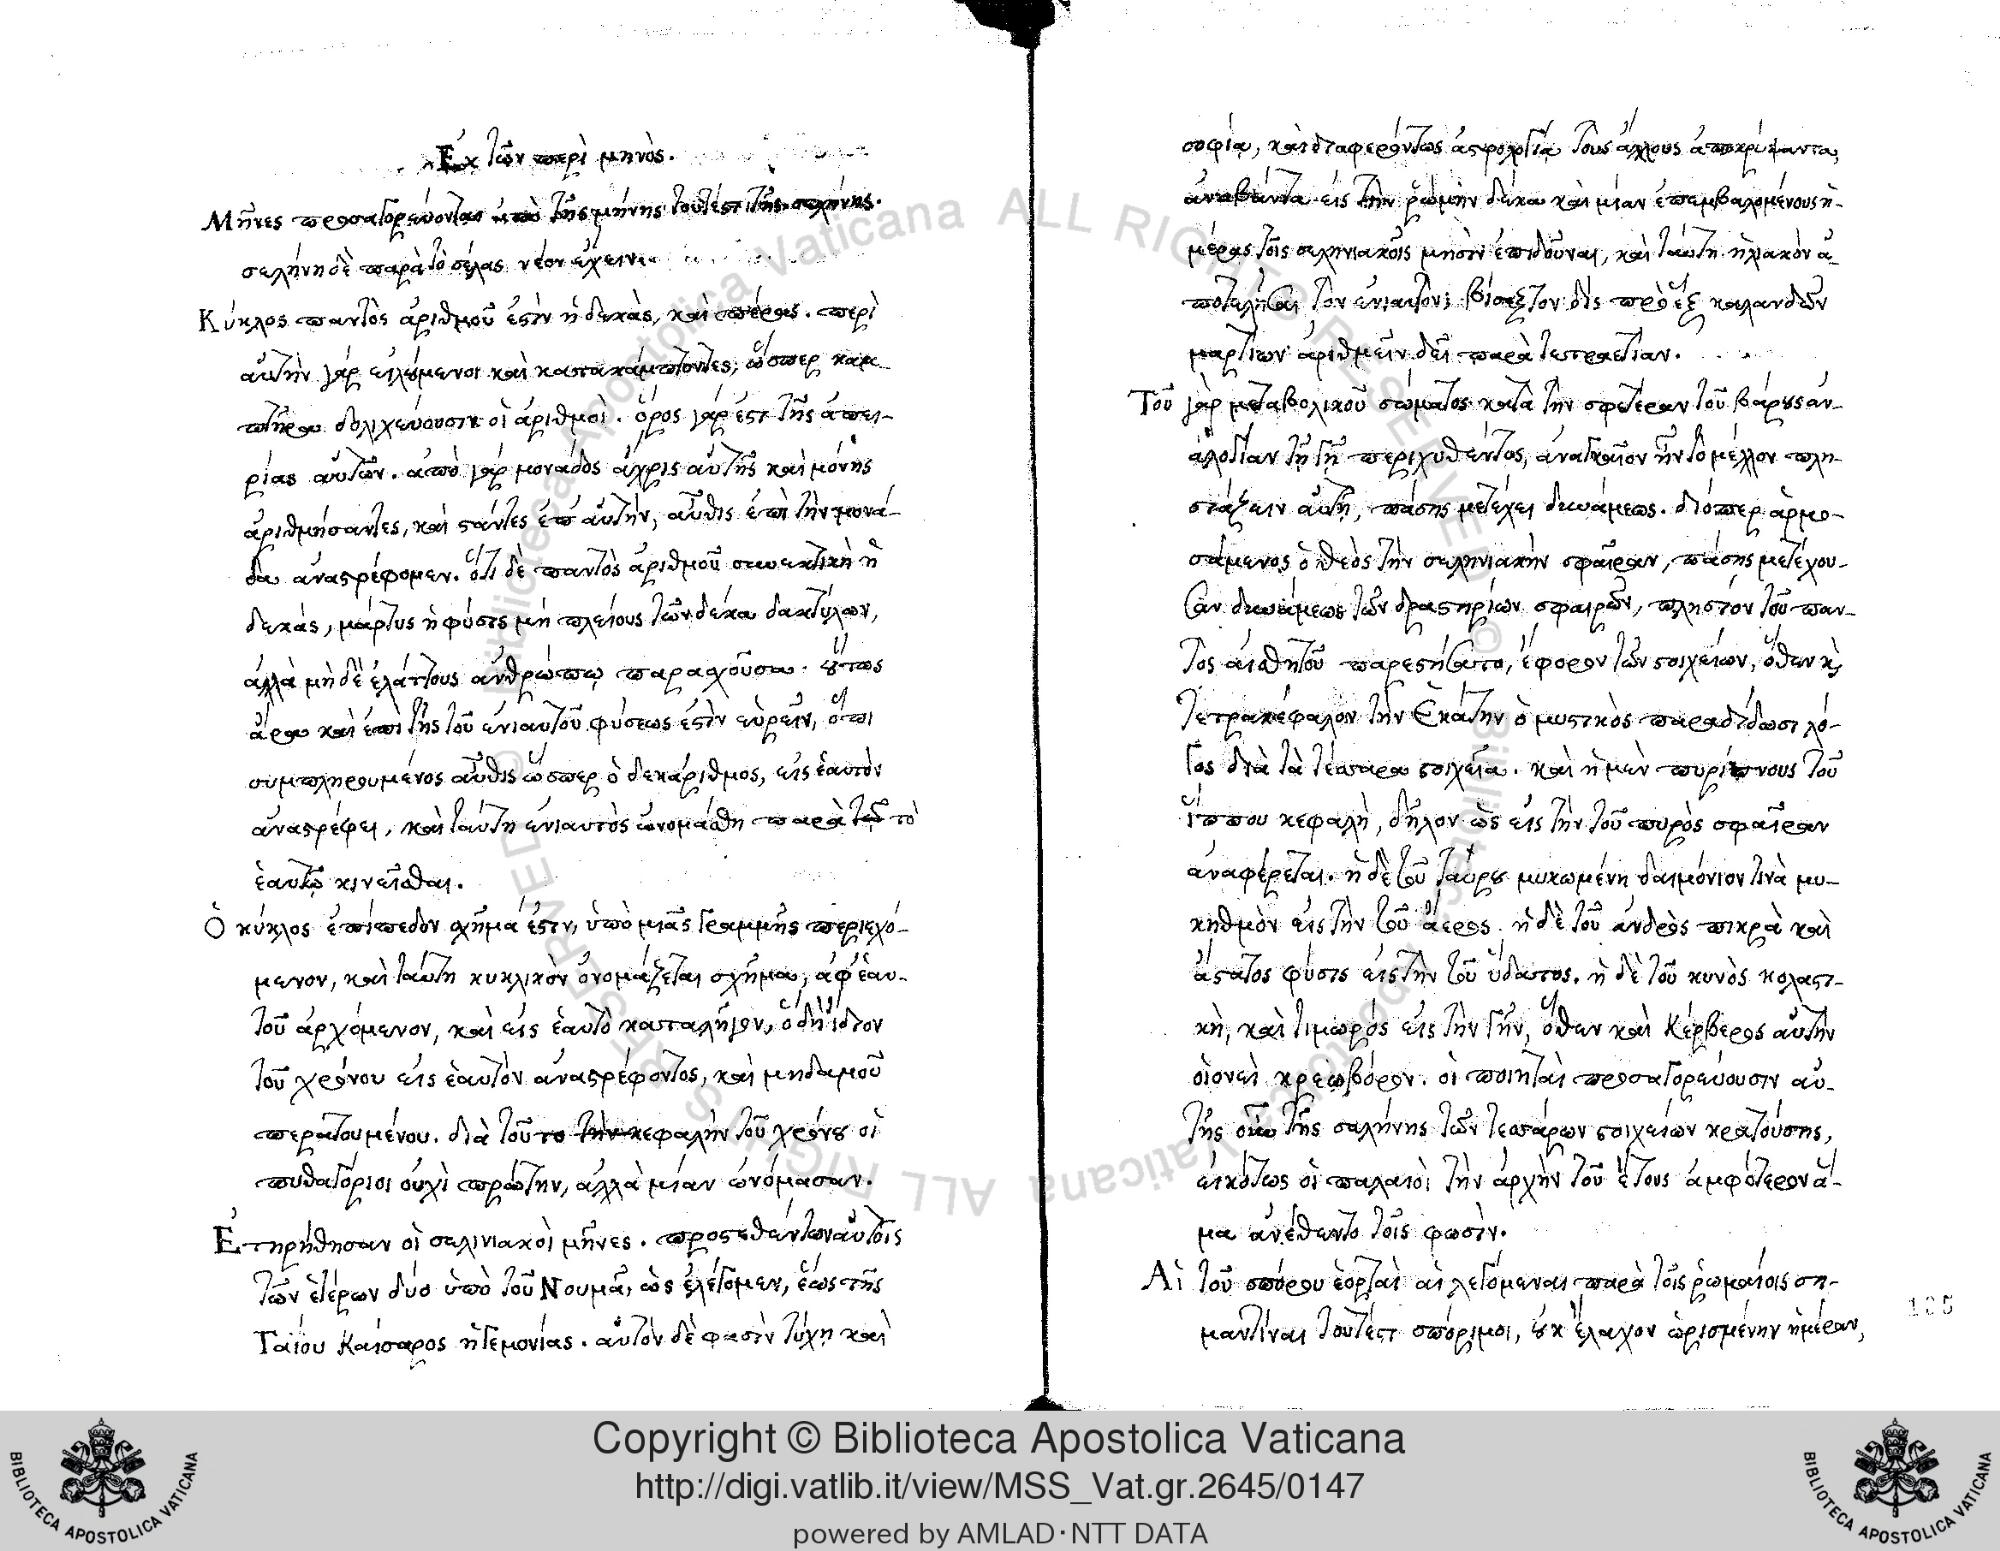 Ἐκ τῶν περὶ μηνός.
Μῆνες προσαγορεύονται ἀπὸ τῆς μήνης τουτέστι τῆς σελήνης.
σελήνη δὲ παρὰ τὸ σέλας νέον ἔχειν.
Κύκλος παντὸς ἀριθμοῦ ἐστὶν ἡ δεκὰς, καὶ πέρας. περὶ
αὐτὴν γὰρ εἱλούμενοι καὶ κατακάμπτοντες, ὥσπερ καμ
πτῆρα δολιχεύουσιν οἱ ἀριθμοὶ. ὅρος γάρ ἐστι τῆς ἀπει-
ρίας αὐτῶν. ἀπὸ γὰρ μονάδος ἄχρις αὐτῆς καὶ μόνης
ἀριθμήσαντες, καὶ στάντες ἐπ' αὐτὴν, αὖθις ἐπὶ τὴν μονά-
δα ἀναστρέφομεν. ὅτι δὲ παντὸς ἀριθμοῦ συνεκτικὴ ἡ
δεκὰς, μάρτυς ἡ φύσις μὴ πλείους τῶν δέκα δακτύλων,
ἀλλὰ μὴ δὲ ἐλάττους ἀνθρώπῳ παρασχοῦσα. οὕτως
ἄρα καὶ ἐπὶ τῆς τοῦ ἐνιαυτοῦ φύσεως ἐστὶν εὑρεῖν, ὅτι
συμπληρουμένος αὖθις ὥσπερ ὁ δεκάριθμος, εἰς ἑαυτὸν
ἀναστρέφει, καὶ ταύτῃ ἐνιαυτὸς ὠνομάσθη παρὰ τῷ τὸ
ἑαυτῷ κινεῖσθαι.
Ὁ κύκλος ἐπίπεδον σχῆμά ἐστιν, ὑπὸ μιᾶς γραμμῆς περιεχό-
μενον, καὶ ταύτῃ κυκλικὸν ὀνομάζεται σχῆμα, ἀφ' ἑαυ-
τοῦ ἀρχόμενον, καὶ εἰς ἑαυτὸ καταλῆγον, ὃ δὴ ἴδιον
τοῦ χρόνου εἰς ἑαυτὸν ἀναστρέφοντος, καὶ μηδαμοῦ
περατουμένου. διὰ τοῦτο τὴν κεφαλὴν τοῦ χρόνου οἱ
πυθαγόριοι οὐχὶ πρώτην, ἀλλὰ μίαν ὠνόμασαν.
Ἐτηρήθησαν οἱ σελινιακοὶ μῆνες. προστεθέντων αὐτοῖς
τῶν ἑτέρων δύο ὑπὸ τοῦ Νουμᾶ, ὡς ἐλέγομεν, ἕως τῆς
Γαΐου Καίσαρος ἡγεμονίας. αὐτὸν δὲ φασὶν τύχῃ καὶ
σοφίᾳ, καὶ διαφερόντως ἀστρολογίᾳ τοὺς ἄλλους ἀποκρύψαντα,
ἀναβάντα εἰς τὴν ῥώμην δέκα καὶ μίαν ἐπεμβαλομένους ἡ-
μέρας τοῖς σεληνιακοῖς μησὶν ἐπιδοῦναι, καὶ ταύτῃ ἡλιακὸν ἀ-
ποτελέσαι τὸν ἐνιαυτόν; βίσεξτον δὶς πρὸ ἓξ καλανδῶν
μαρτίων ἀριθμεῖν δεῖ παρὰ τετραετίαν.
Τοῦ γὰρ μεταβολικοῦ σώματος κατὰ τὴν σφετέραν τοῦ βάρους ἀν-
αλογίαν τῇ γῇ περιχυθέντος, ἀναγκαῖον ἦν τὸ μέλλον πλη-
σιάζειν αὐτῇ, πάσης μετέχει δυνάμεως. διόπερ ἁρμο-
σάμενος ὁ θεὸς τὴν σεληνιακὴν σφαῖραν, πάσης μετέχου-
σαν δυνάμεως τῶν δραστηρίων σφαιρῶν, πλησίον τοῦ παν-
τὸς αἰσθητοῦ παρεστήσατο, ἔφορον τῶν στοιχείων, ὅθεν καὶ
τετρακέφαλον τὴν Ἑκάτην ὁ μυστικὸς παραδίδωσι λό-
γος διὰ τὰ τέσσαρα στοιχεῖα. καὶ ἡ μὲν πυρίπνους τοῦ
ἵππου κεφαλὴ, δῆλον ὡς εἰς τὴν τοῦ πυρὸς σφαῖραν
ἀναφέρεται. ἡ δὲ τοῦ ταύρου μυκωμένη δαιμόνιον τινὰ μυ-
κηθμὸν εἰς τὴν τοῦ ἀέρος. ἡ δὲ τοῦ ἀνδρὸς πικρὰ καὶ
ἄστατος φύσις εἰς τὴν τοῦ ὕδατος. ἡ δὲ τοῦ κυνὸς κολαστι-
κὴ, καὶ τιμωρός εἰς τὴν γῆν, ὅθεν καὶ Κέρβερος αὐτὴν
οἱονεὶ κρεωβόρον. οἱ ποιηταὶ προσαγορεύουσιν αὐ-
τῆς οὖν τῆς σελήνης τῶν τεσσάρων στοιχείων κρατούσης,
εἰκότως οἱ παλαιοὶ τὴν ἀρχὴν τοῦ ἔτους ἀμφότερον ἅ-
μα ἀνέθεντο τοῖς φωσίν.
Αἱ τοῦ σπόρου ἑορταὶ αἱ λεγόμεναι παρὰ τοῖς ῥωμαίοις ση-
μαντίναι τουτέστι σπόριμοι, οὐκ ἔλαχον ὡρισμένην ἡμέραν,
105
Copyright © Biblioteca Apostolica Vaticana
http://digi.vatlib.it/view/MSS_Vat.gr.2645/0147
powered by AMLAD·NTT DATA
BIBLIOTECA APOSTOLICA VATICANA
BIBLIOTECA APOSTOLICA VATICANA
© Biblioteca Apostolica Vaticana ALL RIGHTS RESERVED